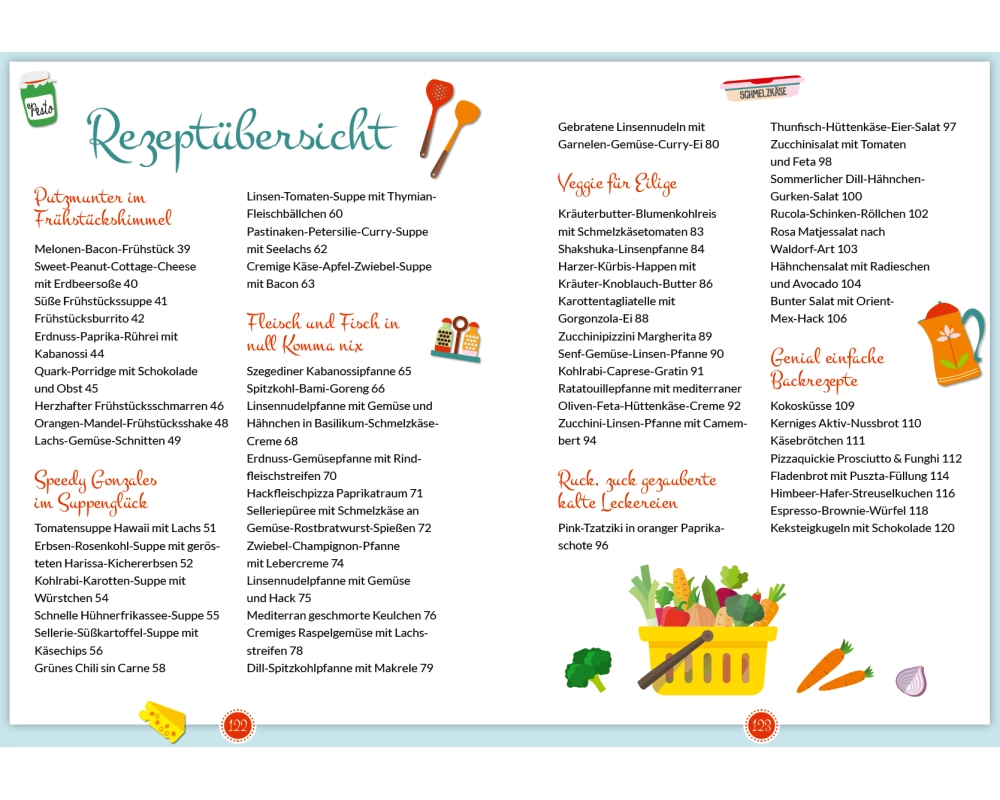 Pesto
Rezeptübersicht
Putzmunter im
Frühstückshimmel
Melonen-Bacon-Frühstück 39
Sweet-Peanut-Cottage-Cheese
mit Erdbeersoße 40
Süße Frühstückssuppe 41
Frühstücksburrito 42
Erdnuss-Paprika-Rührei mit
Kabanossi 44
Quark-Porridge mit Schokolade
und Obst 45
Herzhafter Frühstücksschmarren 46
Orangen-Mandel-Frühstücksshake 48
Lachs-Gemüse-Schnitten 49
Speedy Gonzales
im Suppenglück
Tomatensuppe Hawaii mit Lachs 51
Erbsen-Rosenkohl-Suppe mit gerös-
teten Harissa-Kichererbsen 52
Kohlrabi-Karotten-Suppe mit
Würstchen 54
Schnelle Hühnerfrikassee-Suppe 55
Sellerie-Süßkartoffel-Suppe mit
Käsechips 56
Grünes Chili sin Carne 58
Linsen-Tomaten-Suppe mit Thymian-
Fleischbällchen 60
Pastinaken-Petersilie-Curry-Suppe
mit Seelachs 62
Cremige Käse-Apfel-Zwiebel-Suppe
mit Bacon 63
Fleisch und Fisch in
null Komma nix
Szegediner Kabanossipfanne 65
Spitzkohl-Bami-Goreng 66
Linsennudelpfanne mit Gemüse und
Hähnchen in Basilikum-Schmelzkäse-
Creme 68
Erdnuss-Gemüsepfanne mit Rind-
fleischstreifen 70
Hackfleischpizza Paprikatraum 71
Selleriepüree mit Schmelzkäse an
Gemüse-Rostbratwurst-Spießen 72
Zwiebel-Champignon-Pfanne
mit Lebercreme 74
Linsennudelpfanne mit Gemüse
und Hack 75
Mediterran geschmorte Keulchen 76
Cremiges Raspelgemüse mit Lachs-
streifen 78
Dill-Spitzkohlpfanne mit Makrele 79
122
SCHMELZKÄSE
Gebratene Linsennudeln mit
Garnelen-Gemüse-Curry-Ei 80
Veggie für Eilige
Kräuterbutter-Blumenkohlreis
mit Schmelzkäsetomaten 83
Shakshuka-Linsenpfanne 84
Harzer-Kürbis-Happen mit
Kräuter-Knoblauch-Butter 86
Karottentagliatelle mit
Gorgonzola-Ei 88
Zucchinipizzini Margherita 89
Senf-Gemüse-Linsen-Pfanne 90
Kohlrabi-Caprese-Gratin 91
Ratatouillepfanne mit mediterraner
Oliven-Feta-Hüttenkäse-Creme 92
Zucchini-Linsen-Pfanne mit Camem-
bert 94
Ruck, zuck gezauberte
kalte Leckereien
Pink-Tzatziki in oranger Paprika-
schote 96
Thunfisch-Hüttenkäse-Eier-Salat 97
Zucchinisalat mit Tomaten
und Feta 98
Sommerlicher Dill-Hähnchen-
Gurken-Salat 100
Rucola-Schinken-Röllchen 102
Rosa Matjessalat nach
Waldorf-Art 103
Hähnchensalat mit Radieschen
und Avocado 104
Bunter Salat mit Orient-
Mex-Hack 106
Genial einfache
Backrezepte
Kokosküsse 109
Kerniges Aktiv-Nussbrot 110
Käsebrötchen 111
Pizzaquickie Prosciutto & Funghi 112
Fladenbrot mit Puszta-Füllung 114
Himbeer-Hafer-Streuselkuchen 116
Espresso-Brownie-Würfel 118
Keksteigkugeln mit Schokolade 120
123